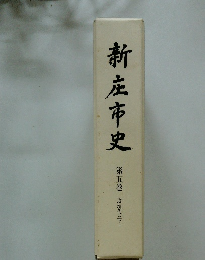 新庄市史
第五巻